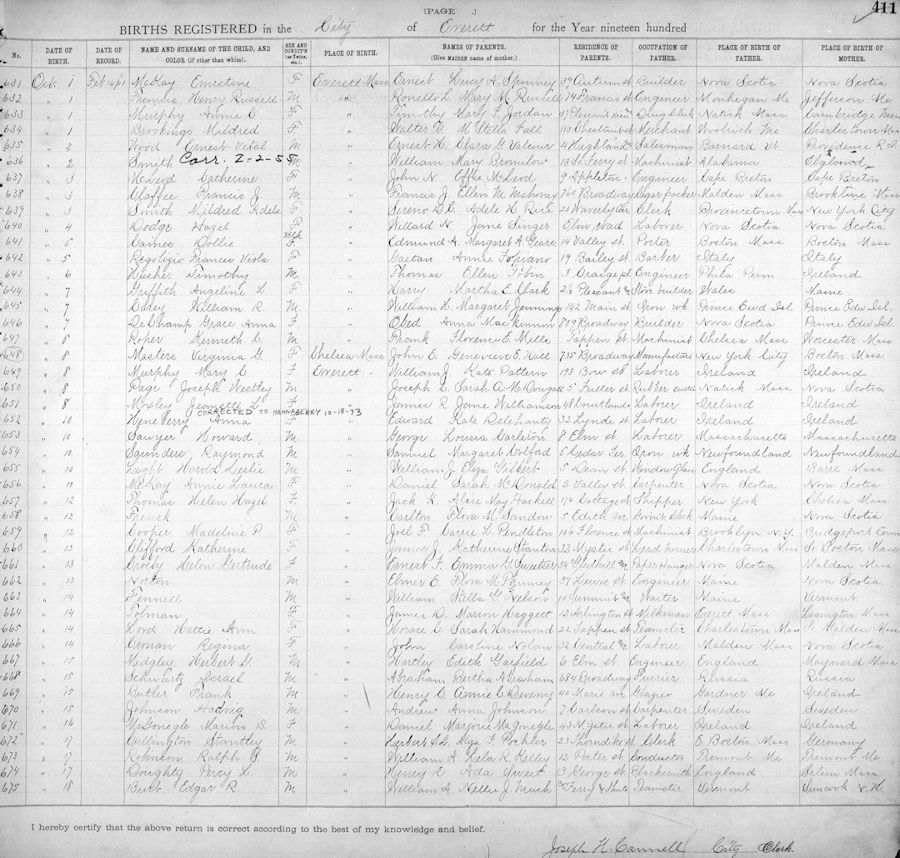 (PAGE .)
411
BIRTHS REGISTERED in the City of Everett for the Year nineteen hundred
No. DATE OF BIRTH. DATE OF RECORD. NAME AND SURNAME OF THE CHILD, AND COLOR (if other than white). SEX AND CONDIT'N (as Twins, etc.). PLACE OF BIRTH. NAMES OF PARENTS. (Give MAIDEN name of mother.) RESIDENCE OF PARENTS. OCCUPATION OF FATHER. PLACE OF BIRTH OF FATHER. PLACE OF BIRTH OF MOTHER.
631 Oct. 1 McKay Christine F Everett Mass Ernest Lucy A. Spinney 39 Autumn st Builder Nova Scotia Nova Scotia
632 " 1 Francis Henry Russell M " Mary M. Russell 14 Francis st Engineer Monhegan Me Jefferson Me
633 " 1 Murphy Annie F " Timothy Mary F. Jordan Drug clerk Natick Mass Cambridge Mass
634 " 1 Brookings Mildred F " Walter G. M. Stella Fall 110 Chestnut st Merchant Woolwich Me Charlestown Mass
635 " 2 Wood Ernest Vital M " Ernest H. Clara G. 4 Highland Salesman Barnard Vt. Providence R.I.
636 " 2 Smith Corr. 2-2-55 M " William Mary Bromilow 13 So. Ferry st Machinist Alabama England
637 " 3 McLeod Catherine F " John N. Effie McLeod 9 Appleton Engineer Cape Breton Cape Breton
638 " 3 Claffee Francis J. M " Francis J. Ellen M. Mahoney 760 Broadway Cigar packer Malden Mass Brookline Mass
639 " 3 Smith Mildred Adele F " Sereno D. Adele H. Rice 20 Waverly Clerk Provincetown Mass New York City
640 " 4 Dodge Hazel F " Willard N. Jane Singer Elm road Laborer Nova Scotia Nova Scotia
641 " 5 Eames Dollie Blk F " Edmund A. Margaret A. 14 Valley st. Porter Boston Mass Boston Mass
642 " 5 Frances Viola F " Gaetan Annie 19 Bailey st Barber Italy Italy
643 " 6 Kusher Timothy M " Thomas Ellen Tobin 3 Craige pl Engineer Phila Penn Ireland
644 " 7 Griffith Angeline L. F " Harry Martha E. Clark Pleasant Stone builder Wales Maine
645 " 7 Carey William R M " William H. Margaret Jennings 142 Main st Iron wk Prince Ewd Isl. Prince Edw Isl.
646 " 7 DeChamp Grace Anna F " Obed Anna MacKinnon 809 Broadway Builder Nova Scotia Prince Edw Isl.
647 " 8 Roper Kenneth D. M " Frank Florence E. Mills Tappen st Machinist Chelsea Mass Worcester Mass
648 " 8 Masters Virginia G. F Chelsea Mass John E. Genevieve E. Will 735 Broadway Manufacture New York City Boston Mass.
649 " 8 Murphy Mary F Everett William J. Kate Pattern 193 Bow st Laborer Ireland Ireland
650 " 8 Page Joseph Westley M " Joseph E. Sarah A. McDougall 5 Fuller st Rubber cutter Natick Mass Nova Scotia
651 " 8 Moxley Jeanette L. F " James R. Jane Williamson 48 Courtland Laborer Ireland Ireland
652 " 10 Anna CORRECTED TO HANNABERRY 10-18-73 F " Edward Kate Delehanty 32 Lynde st Laborer Ireland Ireland
653 " 10 Sawyer Howard M " George Louisa Carleton 8 Elm st Laborer Massachusetts Massachusetts
654 " 10 Saunders Raymond M " Samuel Margaret Wolford 5 Cedar Ter. Iron wk Newfoundland Newfoundland
655 " 10 Light Harold Leslie M " William J. Eliza Gilbert 5 Dean st Window Glass England Barre Mass
656 " 11 McKay Annie Laura F " Daniel Sarah McDonald 2 Valley st Carpenter Nova Scotia Nova Scotia
657 " 12 Thomas Helen Hazel F " Jack K. Alice May Haskell 14 Cottage st Shipper New York Chelsea Mass
658 " 12 French M " Carlton Flora M. Sandon 5 Edith av Maine Nova Scotia
659 " 12 Cooper Madeline P. F " Joel F. Carrie L. Pendleton 106 Florence st Machinist Brooklyn N.Y. Bridgeport Conn
660 " 13 Clifford Katherine F " James J. Katherine Stanton 32 Mystic st Charlestown Mass So Boston Mass
661 " 13 Crosby Helen Gertrude F " Ernest F. Emma G. Sweetser Paper Hanger Nova Scotia Malden Mass
662 " 13 Norton M " Elmer E. Flora M. Phinney 37 Lewis st. Engineer Maine Nova Scotia
663 " 14 Fennell M " William Stella G. Nelson 10 Summit av Waiter Maine Vermont
664 " 14 Tolman F " James D. Marion Haggett 12 Arlington st Milkman Everett Mass Lexington Mass
665 " 14 Lord Hattie Ann F " Horace C. Sarah Hammond 22 Tappen st. Teamster Charlestown Mass Malden Mass
666 " 14 Cronan Regina F " John Caroline Nolan 32 Central av Laborer Malden Mass Nova Scotia
667 " 15 Medgley Herbert G. M " Hartley Edith Garfield 6 Elm st Engineer England Maynard Mass
668 " 15 Schwartz Israel M " Abraham Bertha Abraham 684 Broadway Furrier Russia Russia
669 " 15 Butler Frank M " Henry C. Annie E Deveny 40 Marie av Glazier Gardner Me Ireland
670 " 15 Johnson Hedvig F " Andrew Anna Johnson 7 Carlson st Carpenter Sweden Sweden
671 " 16 McGonegle Marion B F " Daniel Marjorie McGonegle 43 Mystic st Laborer Ireland Ireland
672 " 17 Cullington Stantley M " Herbert S.L. Olga F. Poehler 23 Thorndike st Clerk E. Boston Mass Germany
673 " 17 Robinson Ralph M " William A. Lela R. Kelley 12 Porter st. Conductor Tremont Me Tremont Me
674 " 17 Doughty Percy L. M " Henry Ada Sweet 13 George st Blacksmith England Salem Mass
675 " 18 Burt Edgar R M " William A. Nellie J. Much Teamster Vermont Suncook N.H.
I hereby certify that the above return is correct according to the best of my knowledge and belief.
Joseph H. Cannell City Clerk.